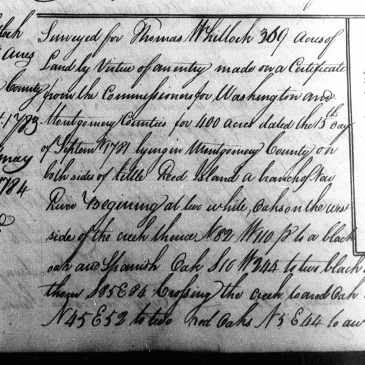 lock
Acres
County
1783
may
1784
Surveyed for Thomas Whitlock 369 Acres of
Land by Virtue of an entry made on a Certificate
from the Commissioners for Washington and
Montgomery Counties for 400 acres dated the 5th Day
of Septem 1781 lying in Montgomery County on
both side of little Reed Island a branch of New
River Beginning at two white oaks on the west
side of the creek thence N82 W110 ps to a black
oak and Spanish Oak S10 W344 to two black
them S85E84 Crossing the creek to a red Oak
N45E52 to two Red Oaks N5E44 to a w